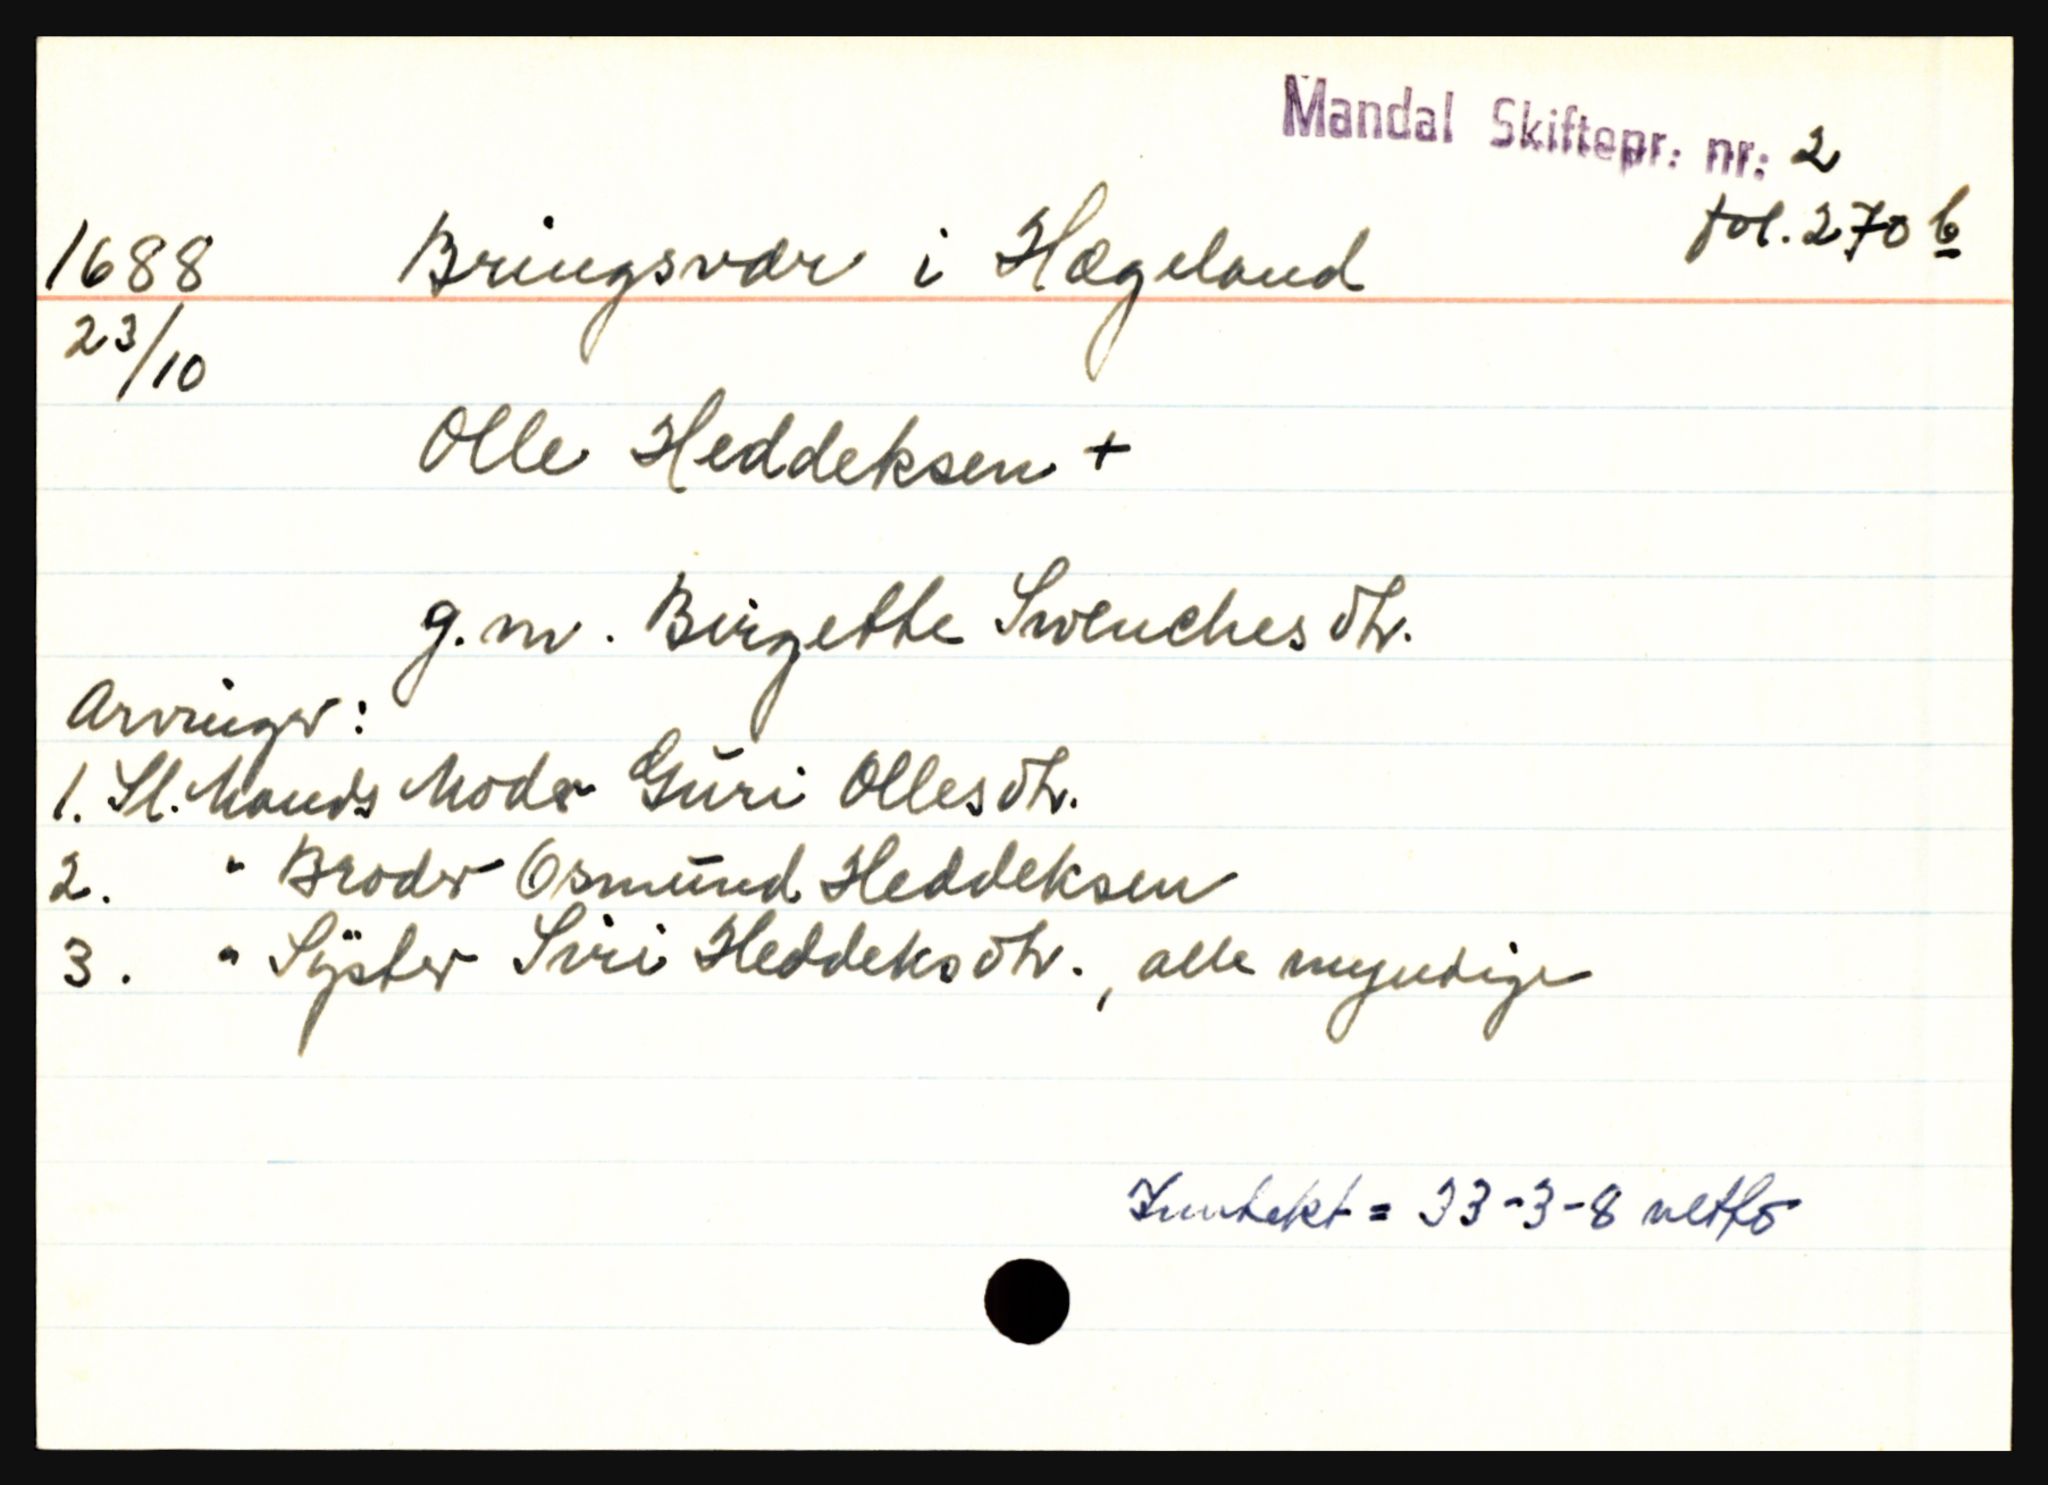 Mandal Skiftepr. nr: 2
fol. 270 b
1688 Bringsvær i Hægeland
23/10
Olle Heddeksen +
g. m. Birgette Swenches dtr.
Arvinger:
1. Sl. Mands Moder Guri Olles dtr.
2. " Broder Osmund Heddeksen
3. " Syster Siri Heddeks dtr., alle myndige
= 33-3-8 netto